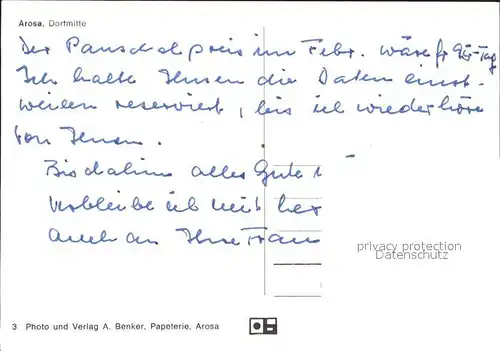 Arosa, Dorfmitte
Der Pauschalpreis im Febr. wäre fr 95.-Tag
Ich halte Ihnen die Daten einst-
weilen reserviert, bis ich wieder höre
von Ihnen.
Bis dahin alles Gute
verbleibe ich mit her
auch an Ihre Frau
privacy protection
Datenschutz
3 Photo und Verlag A. Benker, Papeterie, Arosa